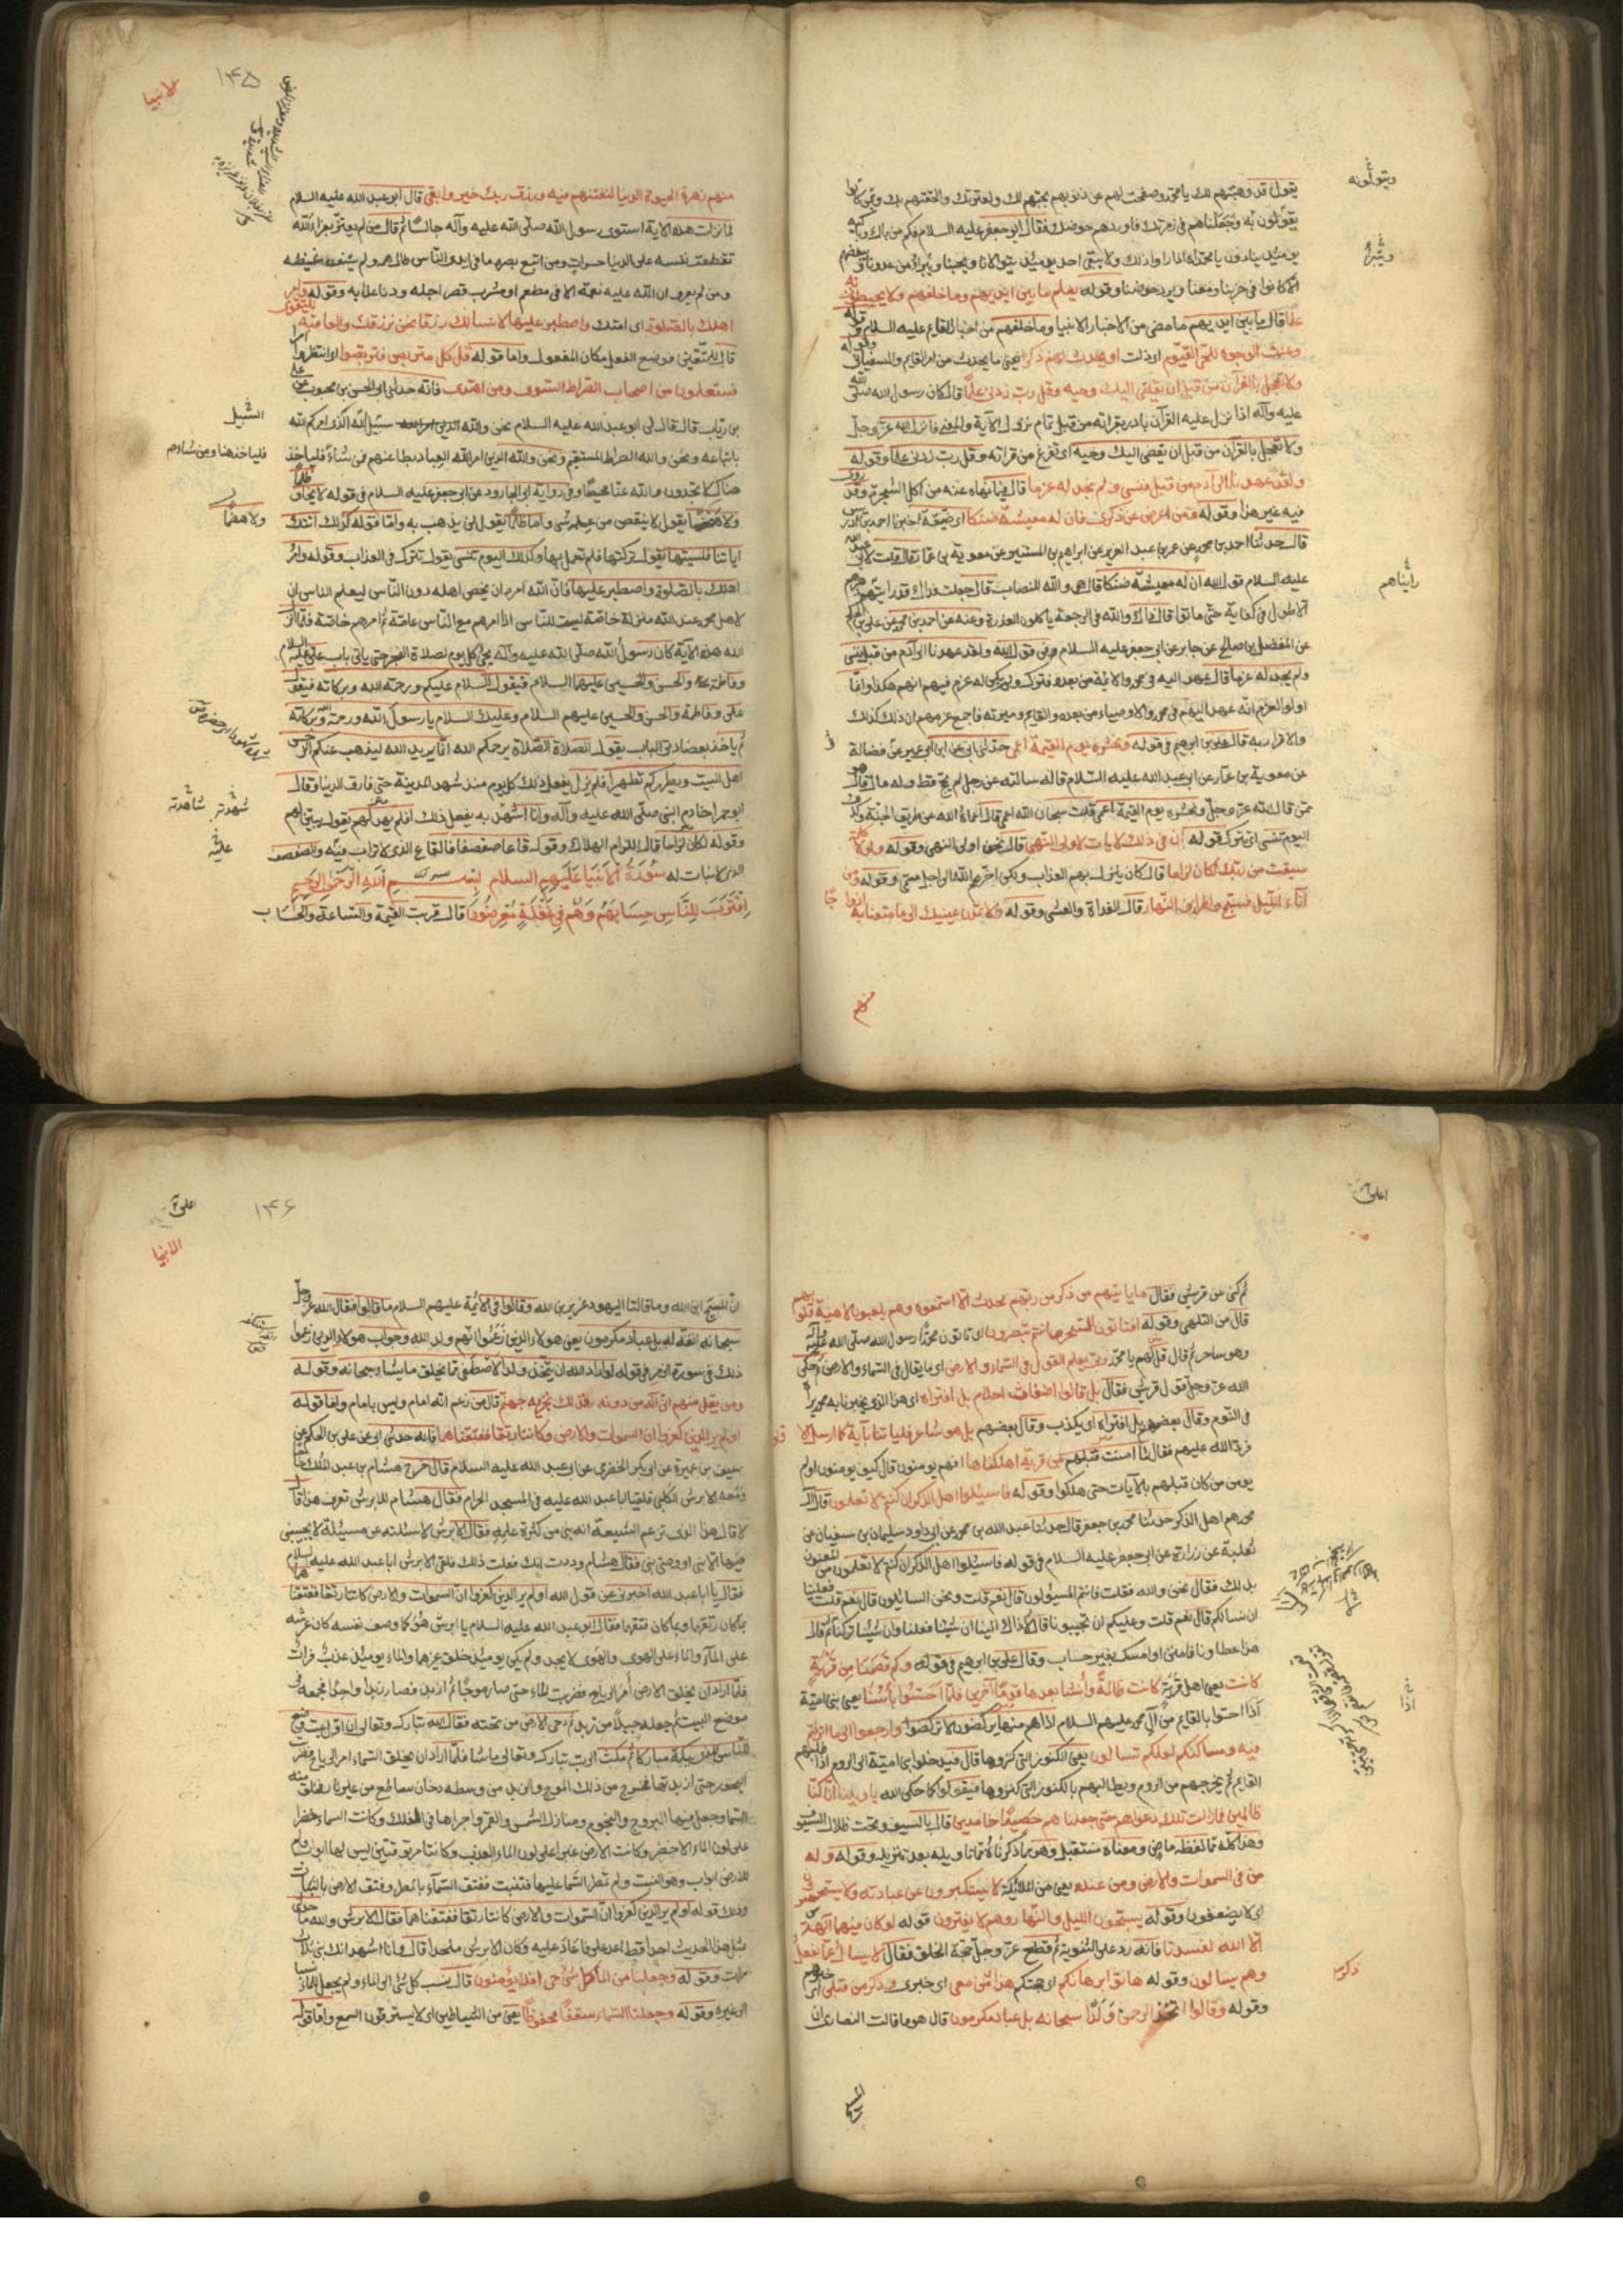 ويتولونه
يقول قد وهبتهم لك يا محمد وصفحت لهم عن ذنوبهم بحبهم لك ولعترتك والحقتهم بك وبمن كانوا
يقولون به وجعلناهم في زمرتك فاوردهم حوضك فقال ابو جعفر عليه السلام فكم من باك وباكية
يومئذ ينادون يا محمداه اذا راوا ذلك ولا يبقى احد يومئذ يتوالانا ويحبنا ويتبرأ من عدونا ويبغضهم
الا كانوا في حزبنا ومعنا ويرد حوضنا وقوله يعلم ما بين ايديهم وما خلفهم ولا يحيطون به
علما قال ما بين ايديهم ما مضى من الاخبار الانبيا وما خلفهم من اخبار القايم عليه السلام وقوله
وعنت الوجوه للحي القيوم اى ذلت او يحدث لهم ذكرا يعني ما يحدث من امر القايم والسفياني وقوله
ولا تعجل بالقرآن من قبل ان يقضى اليك وحيه وقل رب زدني علما قال كان رسول الله صلى الله
عليه وآله اذا نزل عليه القرآن بادر بقراته من قبل تمام نزول الآية والمعنى فانزل الله عز وجل
ولا تعجل بالقرآن من قبل ان يقضى اليك وحيه اى تفرغ من قراته وقل رب زدني علما وقوله
ولقد عهدنا الى آدم من قبل فنسي ولم نجد له عزما قال فيما نهاه عنه من اكل الشجرة وقد روى
فيه غير هذا وقوله ومن اعرض عن ذكرى فان له معيشة ضنكا اى ضيقة اخبرنا احمد بن ادريس
قال حدثنا احمد بن محمد عن عمر بن عبد العزيز عن ابراهيم بن المستنير عن معوية بن عمار قال قلت لابي عبد الله
رايناهم
عليه السلام قول الله ان له معيشة ضنكا قال هي والله النصاب قال جعلت فداك قد رايتهم دهرهم
الاطول في كفاية حتى ماتوا قال ذاك والله في الرجعة ياكلون العذرة وعنه عن احمد بن محمد عن علي بن الحكم
عن المفضل بن صالح عن جابر عن ابي جعفر عليه السلام في قول الله ولقد عهدنا الى آدم من قبل فنسى
ولم نجد له عزما قال عهد اليه في محمد والائمة من بعده فترك ولم يكن له عزم فيهم انهم هكذا وانما
اولوا العزم انه عهد اليهم في محمد والاوصياء من بعده والقايم وسيرته فاجمع عزمهم ان ذلك كذلك
والاقرار به قال علي بن ابرهيم في قوله ونحشره يوم القيمة اعمى حدثني ابي عن ابن ابي عمير عن فضالة
عن معوية بن عمار عن ابي عبد الله عليه السلام قال سالته عن رجل لم يحج قط وله مال قال هو
ممن قال الله عز وجل ونحشره يوم القيمة اعمى قلت سبحان الله اعمى قال اعماه الله عن طريق الجنة وكذلك
اليوم تنسى اى تترك قوله ان في ذلك لايات لاولى النهى قال نحن اولى النهى وقوله ولولا كلمة
سبقت من ربك لكان لزاما قال كان ينزل بهم العذاب ولكن اخرهم الله الى اجل مسمى وقوله ومن
آناء الليل فسبح واطراف النهار قال الغداة والعشى وقوله ولا تمدن عينيك الى ما متعنا به ازواجا
منهم
۱۴۵
الانبيا
منهم زهرة الحيوة الدنيا لنفتنهم فيه ورزق ربك خير وابقى قال ابو عبد الله عليه السلام
لما نزلت هذه الاية استوى رسول الله صلى الله عليه وآله جالسا ثم قال من لم يتعز بعزاء الله
تقطعت نفسه على الدنيا حسرات ومن اتبع بصره ما في ايدى الناس طال همه ولم يشف غيظه
ومن لم يعرف ان الله عليه نعمة الا في مطعم او مشرب قصر اجله ودنا عذابه وقوله وامر
اهلك بالصلوة اى امتك واصطبر عليها لا نسالك رزقا نحن نرزقك والعاقبة للتقوى
قال للمتقين فوضع الفعل مكان المفعول واما قوله قل كل متربص فتربصوا اى انتظروا امرا
فستعلمون من اصحاب الصراط السوى ومن اهتدى فانه حدثني ابي الحسن بن محبوب عن على
السبيل
بن رئاب قال قال لي ابو عبد الله عليه السلام نحن والله سبيل الله الذى امركم الله
باتباعه ونحن والله الصراط المستقيم ونحن والله الذين امر الله العباد بطاعتهم فمن شاء فلياخذ
فلياخذ هنا ومن شاء فمن
هناك لا تجدون والله عنا محيصا وفي رواية ابي الجارود عن ابي جعفر عليه السلام في قوله لا يخاف ظلما
ولا هضما
ولا هضما يقول لا ينقص من عمله شى واما ظلما يقول لن يذهب به واما قوله كذلك اتتك
آياتنا فنسيتها يقول تركتها فلم تعمل بها وكذلك اليوم تنسى يقول تترك في العذاب وقوله وامر
اهلك بالصلوة واصطبر عليها فان الله امره ان يخص اهله دون الناس ليعلم الناس ان
لاهل محمد عند الله منزلة خاصة ليست للناس اذ امرهم مع الناس عامة ثم امرهم خاصة فلما انزل
الله هذه الآية كان رسول الله صلى الله عليه وآله يجئ كل يوم لصلاة الفجر حتى ياتى باب على عليه السلام
وفاطمة والحسن والحسين عليهما السلام فيقول السلام عليكم ورحمة الله وبركاته فيقول
على وفاطمة والحسن والحسين عليهم السلام وعليك السلام يا رسول الله ورحمة الله وبركاته
ثم ياخذ بعضادتي الباب يقول الصلاة الصلاة يرحمكم الله انما يريد الله ليذهب عنكم الرجس
اهل البيت ويطهركم تطهيرا فلم يزل يفعل ذلك كل يوم منذ شهد المدينة حتى فارق الدنيا وقال
شهدته شاهدته
ابو حمرا خادم النبي صلى الله عليه وآله وانا اشهد به يفعل ذلك افلم يهد لهم يقول يبين لهم
وقوله لكان لزاما قال اللزام الهلاك وقوله قاعا صفصفا فالقاع الذي لا تراب فيه والصفصف
الذى لا نبات له سورة الانبيا عليهم السلام بسم الله الرحمن الرحيم
اقترب للناس حسابهم وهم في غفلة معرضون قال قربت القيمة والساعة والحساب
اعلى
ثم كنى عن قريش فقال ما ياتيهم من ذكر من ربهم محدث الا استمعوه وهم يلعبون لاهية قلوبهم
قال من التلهى وقوله افتاتون السحر وانتم تبصرون اى تاتون محمدا رسول الله صلى الله عليه وآله
وهو ساحر ثم قال قل لهم يا محمد ربي يعلم القول في السماء والارض اى ما يقال في السماء والارض ثم حكى
الله عز وجل قول قريش فقال بل قالوا اضغاث احلام بل افتراه اى هذا الذى يخبرنا به محمد يراه
في النوم وقال بعضهم بل افتراه اى يكذب وقال بعضهم بل هو شاعر فلياتنا بآية كما ارسل الاولون
فرد الله عليهم فقال ما آمنت قبلهم من قرية اهلكناها افهم يومنون قال كيف يومنون ولم
يومن من كان قبلهم بالآيات حتى هلكوا وقوله فاسئلوا اهل الذكر ان كنتم لا تعلمون قال آل
محمد هم اهل الذكر حدثنا محمد بن جعفر قال حدثنا عبد الله بن محمد عن ابي داود سليمان بن سفيان عن
ثعلبة عن زرارة عن ابي جعفر عليه السلام في قوله فاسئلوا اهل الذكر ان كنتم لا تعلمون من المعنون
بذلك فقال نحن والله فقلت فانتم المسئولون قال نعم قلت ونحن السائلون قال نعم قلت فعلينا
ان نسالكم قال نعم قلت وعليكم ان تجيبونا قال لا ذاك الينا ان شئنا فعلنا وان شئنا تركنا ثم قال
هذا عطاونا فامنن او امسك بغير حساب وقال على بن ابرهيم في قوله وكم قصمنا من قرية
كانت يعني اهل قرية كانت ظالمة وانشأنا بعدها قوما آخرين فلما احسوا بأسنا يعني بني امية
اذا احسوا بالقايم من آل محمد عليهم السلام اذا هم منها يركضون لا تركضوا وارجعوا الى ما اترفتم
فيه ومساكنكم لعلكم تسالون يعني الكنوز التي كنزوها قال فيدخلوا بني امية الى الروم اذا طلبهم
القايم ثم يخرجهم من الروم ويطالبهم بالكنوز التي كنزوها فيقولوا كما حكى الله يا ويلنا انا كنا
ظالمين فما زالت تلك دعواهم حتى جعلناهم حصيدا خامدين قال بالسيف وتحت ظلال السيوف
وهذا كله مما لفظه ماض ومعناه مستقبل وهو مما ذكرناه مما تاويله بعد تنزيله وقوله وله
من في السموات والارض ومن عنده يعني من الملائكة لا يستكبرون عن عبادته ولا يستحسرون
اى لا يضعفون وقوله يسبحون الليل والنهار وهم لا يفترون قوله لو كان فيهما آلهة
الا الله لفسدتا فانه رد على الثنوية ثم قطع عز وجل حجة الخلق فقال لا يسال عما يفعل
وهم يسالون وقوله هاتوا برهانكم اى حجتكم هذا ذكر من معي اى خبرى وذكر من قبلى اى خبرهم
وقوله وقالوا اتخذ الرحمن ولدا سبحانه بل عباد مكرمون قال هو ما قالت النصارى ان
۱۴۶
اعلى
الانبيا
ان المسيح ابن الله وما قالت اليهود عزير بن الله وقالوا في الائمة عليهم السلام ما قالوا فقال الله عز وجل
سبحانه انفة له بل عباد مكرمون يعني هولاء الذين زعموا انهم ولد الله وجواب هولاء الذين زعموا
ذلك في سورة الزمر في قوله لو اراد الله ان يتخذ ولدا لاصطفى مما يخلق ما يشاء سبحانه وقوله
ومن يقل منهم انى اله من دونه فذلك نجزيه جهنم قال من زعم انه امام وليس بامام واما قوله
اولم ير الذين كفروا ان السموات والارض كانتا رتقا ففتقناهما فانه حدثني ابي عن على بن الحكم عن
سيف بن عميرة عن ابي بكر الحضرمى عن ابي عبد الله عليه السلام قال خرج هشام بن عبد الملك حاجا
ومعه الابرش الكلبى فلقيا ابا عبد الله عليه في المسجد الحرام فقال هشام للابرش تعرف هذا قال
لا قال هذا الذى تزعم الشيعة انه نبي من كثرة علمه فقال الابرش لاسئلنه عن مسئلة لا يجيبنى
فيها الا نبى او وصى نبى فقال هشام وددت انك فعلت ذلك فلقى الابرش ابا عبد الله عليه السلام
فقال يا ابا عبد الله اخبرنى عن قول الله اولم ير الذين كفروا ان السموات والارض كانتا رتقا ففتقناهما
بما كان رتقهما وبما كان فتقهما فقال ابو عبد الله عليه السلام يا ابرش هو كما وصف نفسه كان عرشه
على الماء والماء على الهوى والهوى لا يحد ولم يكن يومئذ خلق غيرهما والماء يومئذ عذب فرات
فلما اراد ان يخلق الارض امر الرياح فضربت الماء حتى صار موجا ثم ازبد فصار زبدا واحدا فجمعه في
موضع البيت ثم جعله جبلا من زبد ثم دحى الارض من تحته فقال الله تبارك وتعالى ان اول بيت وضع
للناس للذى ببكة مباركا ثم مكث الرب تبارك وتعالى ما شا فلما اراد ان يخلق السماء امر الرياح فضربت
البحور حتى ازبدتها فخرج من ذلك الموج والزبد من وسطه دخان ساطع من غير نار فخلق منه
السما وجعل فيها البروج والنجوم ومنازل الشمس والقمر واجراها في الفلك وكانت السماء خضرا
على لون الماء الاخضر وكانت الارض غبرا على لون الماء العذب وكانتا مرتوقتين ليس لها ابواب ولم
للارض ابواب وهو النبت ولم تمطر السما عليها فتنبت ففتق السماء بالمطر وفتق الارض بالنبات
وذلك قوله اولم ير الذين كفروا ان السموات والارض كانتا رتقا ففتقناهما فقال الابرش والله ما حدثنى
مثل هذا الحديث احد قط اعد على فاعاد عليه وكان الابرش ملحدا قال وانا اشهد انك بن نبى ثلاث
مرات وقوله وجعلنا من الماء كل شى حى افلا يؤمنون قال نسب كل شى الى الماء ولم يجعل للماء نسبا
الى غيره وقوله وجعلنا السماء سقفا محفوظا يعني من الشياطين اى لا يسترقون السمع واما قوله